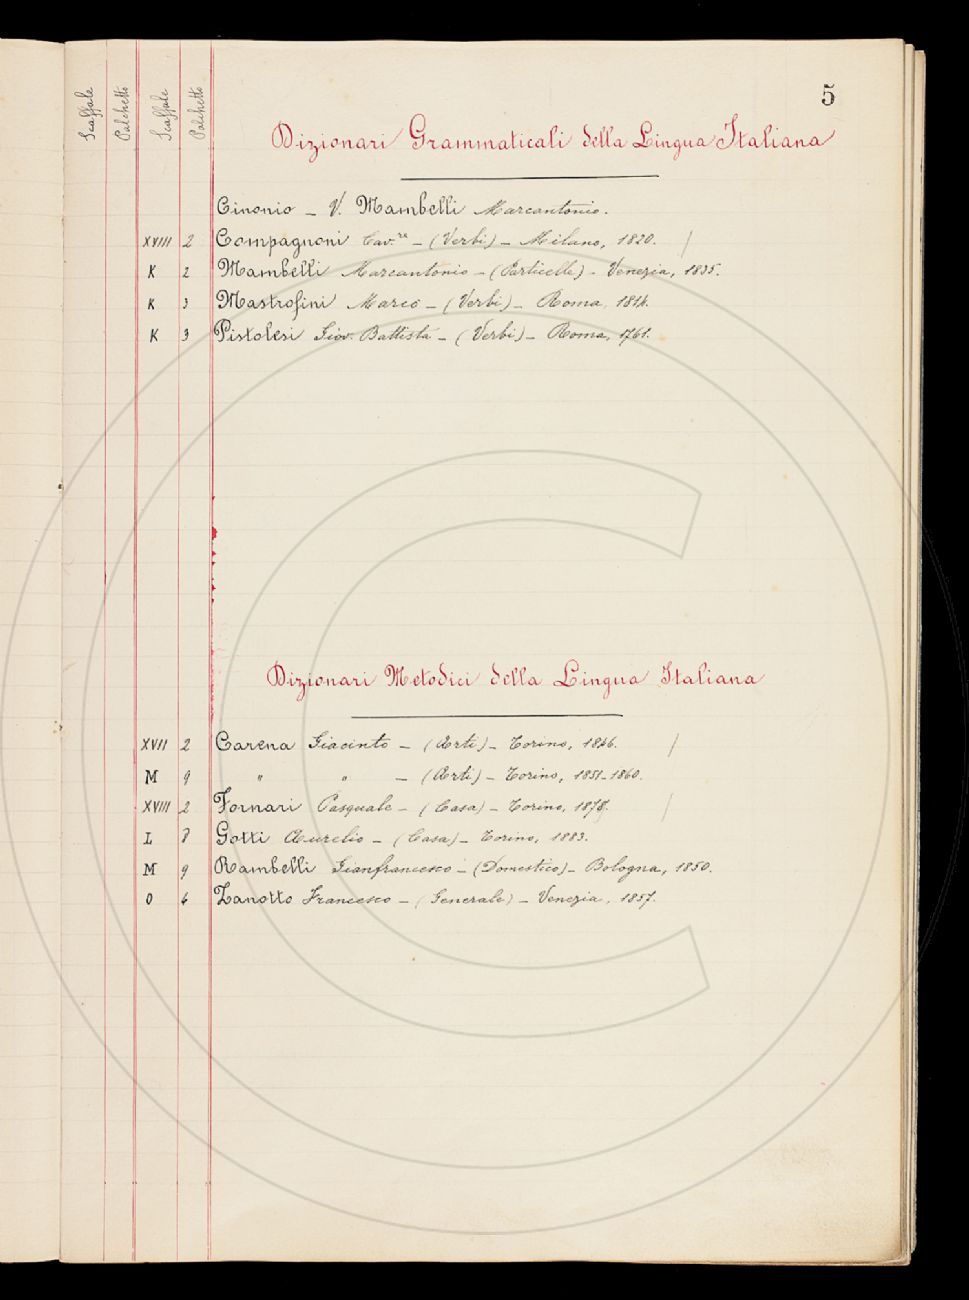 5
Scaffale Palchetto Scaffale Palchetto
Dizionari Grammaticali della Lingua Italiana
Cinonio – V. Mambelli Marcantonio.
XVIII 2 Compagnoni Cav.re – (Verbi) – Milano, 1820. /
K 2 Mambelli Marcantonio – (Particelle) – Venezia, 1835.
K 3 Mastrofini Marco – (Verbi) – Roma, 1814.
K 3 Pistolesi Giov. Battista – (Verbi) – Roma, 1761.
Dizionari Metodici della Lingua Italiana
XVII 2 Carena Giacinto – (Arti) – Torino, 1846. /
M 9 " " – (Arti) – Torino, 1851–1860.
XVIII 2 Fornari Pasquale – (Casa) – Torino, 1878. /
L 8 Gotti Aurelio – (Casa) – Torino, 1883.
M 9 Rambelli Gianfrancesco – (Domestico) – Bologna, 1850.
O 4 Zanotto Francesco – (Generale) – Venezia, 1857.